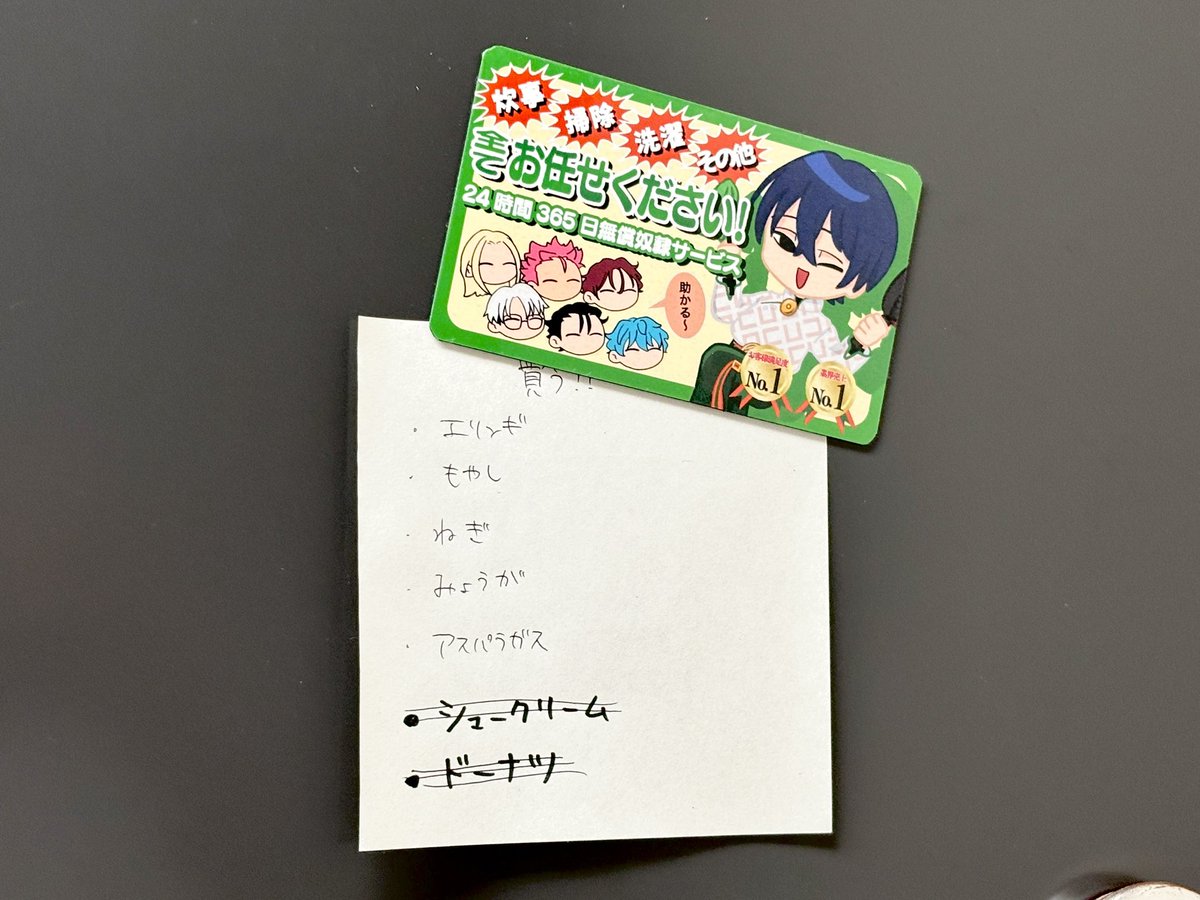 炊事
掃除
洗濯
その他
全てお任せください!
24時間365日無償奴隷サービス
助かる〜
お客様満足度
No.1
業界売上
No.1
買う!!
・エリンギ
・もやし
・ねぎ
・みょうが
・アスパラガス
・シュークリーム
・ドーナツ